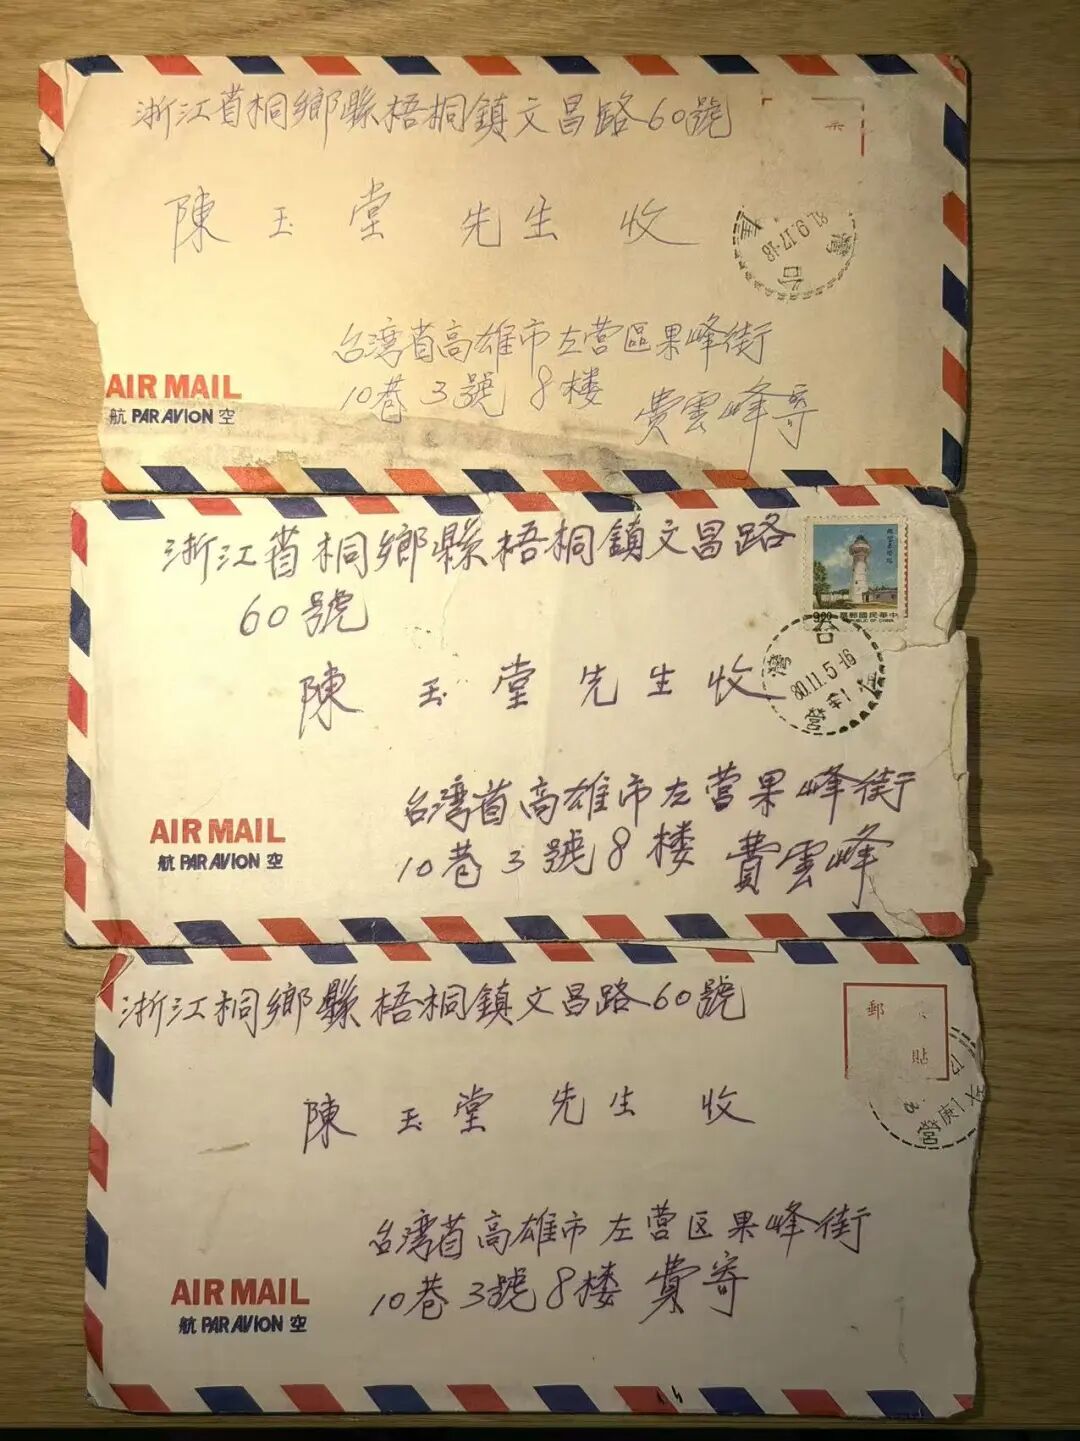 浙江省桐鄉縣梧桐鎮文昌路60號
陳玉堂先生收
81.9.17-18
台灣
台湾省高雄市左营區果峰街
10巷3號8楼 費雲峰寄
AIR MAIL
航 PAR AVION 空
浙江省桐鄉縣梧桐鎮文昌路
60號
9.00 中華民國郵票
REPUBLIC OF CHINA
陳玉堂先生收
台灣
80.11.5-16
台湾省高雄市左营果峰街
10巷3號8楼 費雲峰
AIR MAIL
航 PAR AVION 空
浙江桐鄉縣梧桐鎮文昌路60號
郵
貼
陳玉堂先生收
台湾省高雄市左营区果峰街
10巷3號8楼 費寄
AIR MAIL
航 PAR AVION 空